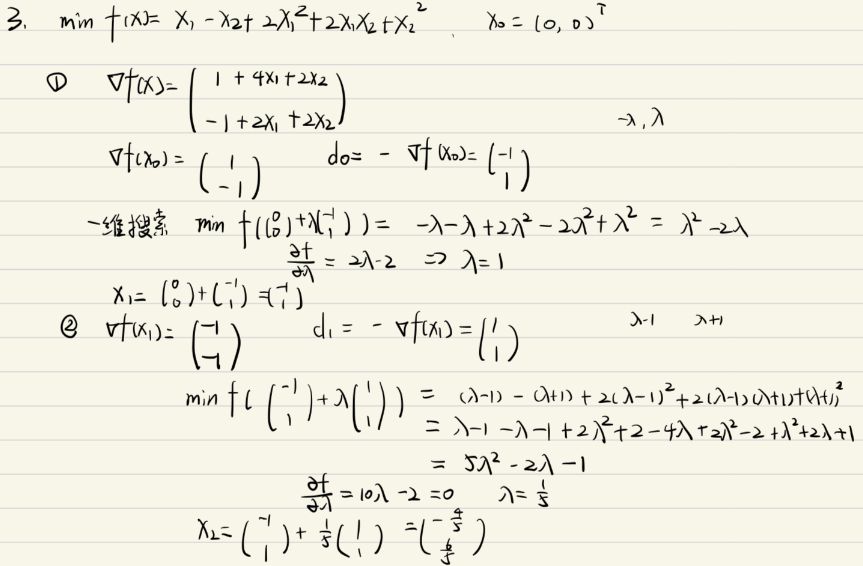 3. min f(x) = x₁ - x₂ + 2x₁² + 2x₁x₂ + x₂² , x₀ = (0, 0)ᵀ
① ∇f(x) = ( 1 + 4x₁ + 2x₂ ; -1 + 2x₁ + 2x₂ )
-λ, λ
∇f(x₀) = ( 1 ; -1 ) d₀ = - ∇f(x₀) = ( -1 ; 1 )
一维搜索 min f( ( 0 ; 0 ) + λ( -1 ; 1 ) ) = -λ - λ + 2λ² - 2λ² + λ² = λ² - 2λ
∂f/∂λ = 2λ - 2 ⇒ λ = 1
x₁ = ( 0 ; 0 ) + ( -1 ; 1 ) = ( -1 ; 1 )
② ∇f(x₁) = ( -1 ; -1 ) d₁ = - ∇f(x₁) = ( 1 ; 1 ) λ-1 λ+1
min f( ( -1 ; 1 ) + λ( 1 ; 1 ) ) = (λ-1) - (λ+1) + 2(λ-1)² + 2(λ-1)(λ+1) + (λ+1)²
= λ - 1 - λ - 1 + 2λ² + 2 - 4λ + 2λ² - 2 + λ² + 2λ + 1
= 5λ² - 2λ - 1
∂f/∂λ = 10λ - 2 = 0 λ = 1/5
x₂ = ( -1 ; 1 ) + 1/5 ( 1 ; 1 ) = ( -4/5 ; 6/5 )